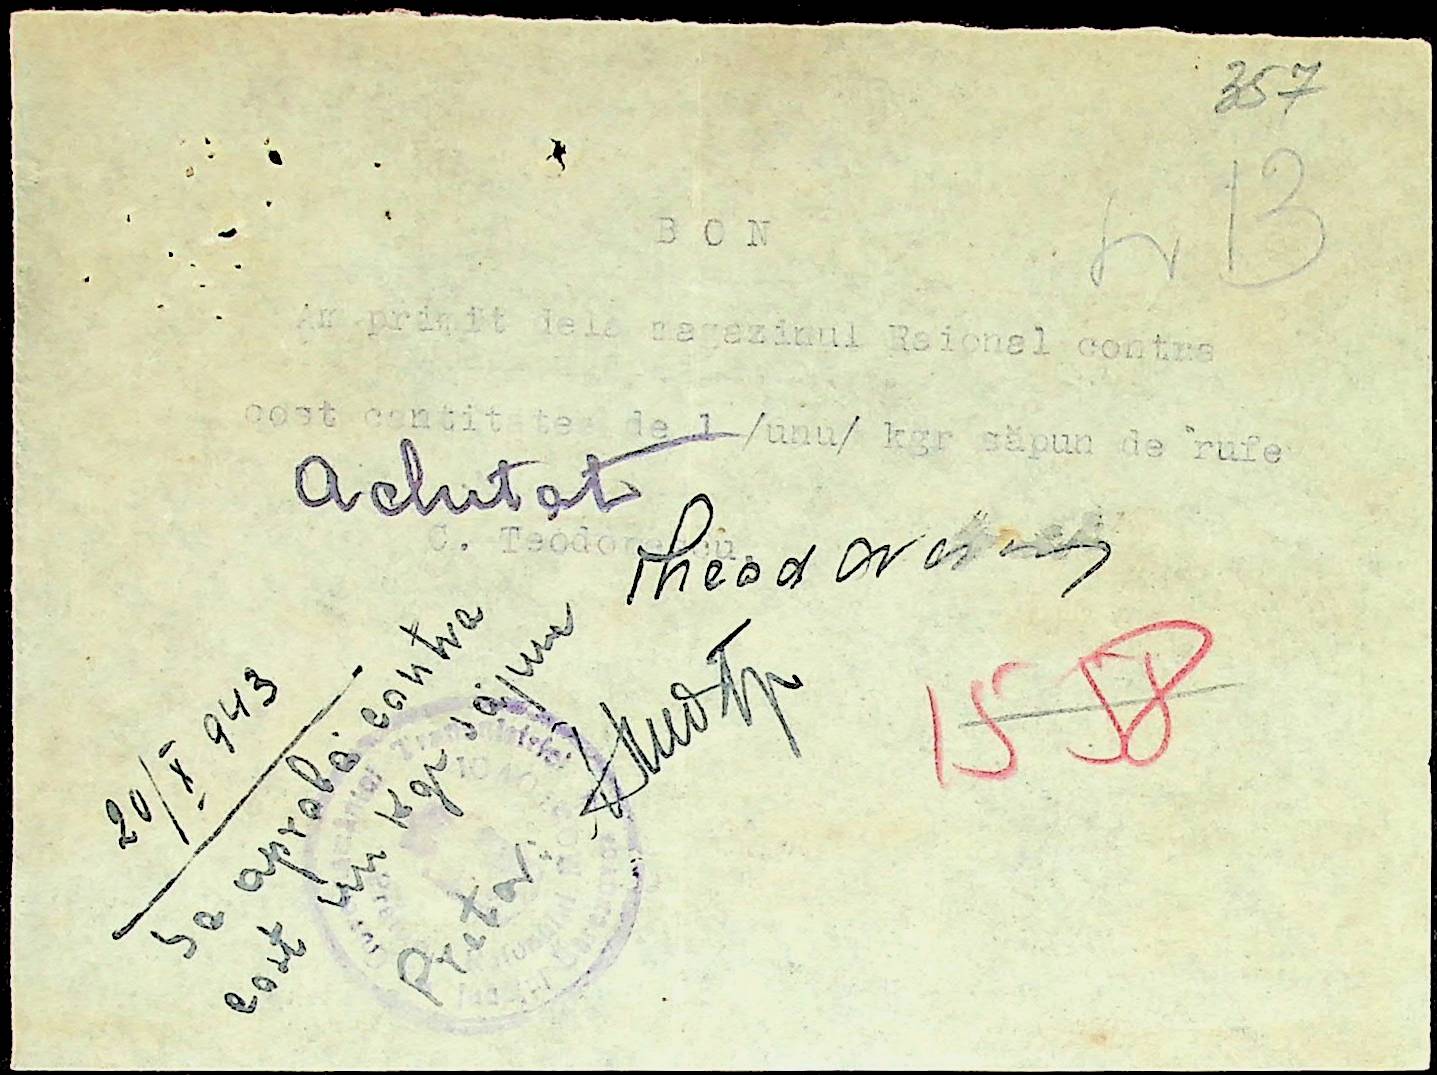 357
13
BON
Am primit dela magazinul Raional contra
cost cantitatea de 1 /unu/ kgr săpun de rufe
Achitat
C. Teodorescu
Theodorescu
20/X 943
Se aprobă contra
cost un kgr săpun
Pretor
15 58
Transnistriei